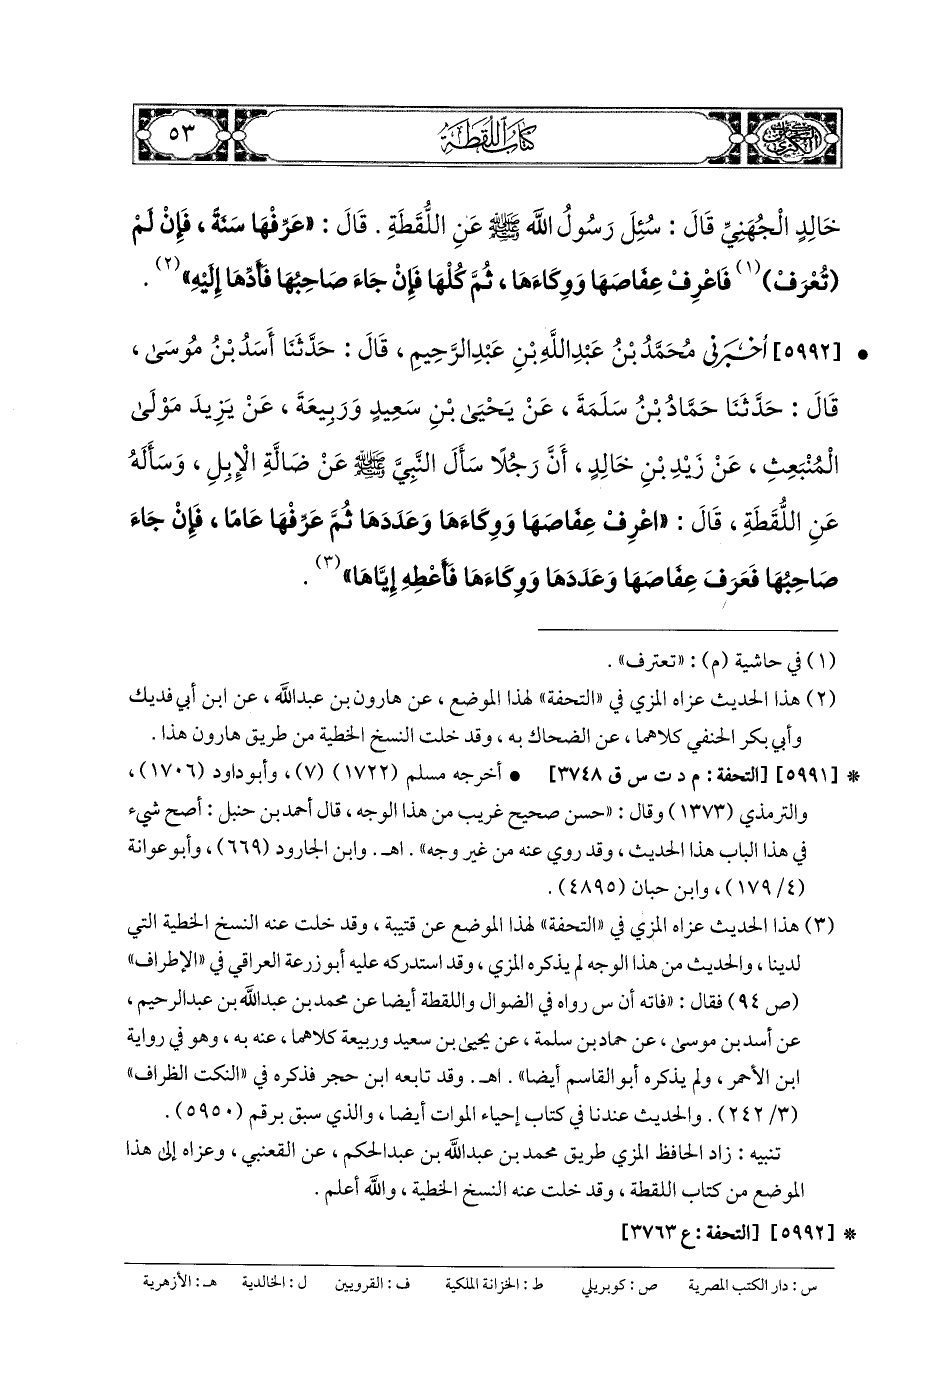 كتاب اللقطة
٥٣
خَالِدٍ الْجُهَنِيِّ قَالَ : سُئِلَ رَسُولُ اللَّه ﷺ عَنِ اللُّقَطَةِ . قَالَ : «عَرِّفْهَا سَنَةً ، فَإِنْ لَمْ
(تُعْرَفْ)(١) فَاعْرِفْ عِفَاصَهَا وَوِكَاءَهَا ، ثُمَّ كُلْهَا فَإِنْ جَاءَ صَاحِبُهَا فَأَدِّهَا إِلَيْهِ»(٢) .
• [٥٩٩٢] أَخْبَرَنِي مُحَمَّدُ بْنُ عَبْدِ اللَّهِ بْنِ عَبْدِ الرَّحِيمِ ، قَالَ : حَدَّثَنَا أَسَدُ بْنُ مُوسَىٰ ،
قَالَ : حَدَّثَنَا حَمَّادُ بْنُ سَلَمَةَ ، عَنْ يَحْيَىٰ بْنِ سَعِيدٍ وَرَبِيعَةَ ، عَنْ يَزِيدَ مَوْلَىٰ
الْمُنْبَعِثِ ، عَنْ زَيْدِ بْنِ خَالِدٍ ، أَنَّ رَجُلًا سَأَلَ النَّبِيَّ ﷺ عَنْ ضَالَّةِ الْإِبِلِ ، وَسَأَلَهُ
عَنِ اللُّقَطَةِ ، قَالَ : «اعْرِفْ عِفَاصَهَا وَوِكَاءَهَا وَعَدَدَهَا ثُمَّ عَرِّفْهَا عَامًا ، فَإِنْ جَاءَ
صَاحِبُهَا فَعَرَفَ عِفَاصَهَا وَعَدَدَهَا وَوِكَاءَهَا فَأَعْطِهِ إِيَّاهَا»(٣) .
(١) في حاشية (م) : «تعترف» .
(٢) هذا الحديث عزاه المزي في «التحفة» لهذا الموضع ، عن هارون بن عبدالله ، عن ابن أبي فديك
وأبي بكر الحنفي كلاهما ، عن الضحاك به ، وقد خلت النسخ الخطية من طريق هارون هذا .
* [٥٩٩١] [التحفة : م د ت س ق ٣٧٤٨] • أخرجه مسلم (١٧٢٢) (٧) ، وأبو داود (١٧٠٦) ،
والترمذي (١٣٧٣) وقال : «حسن صحيح غريب من هذا الوجه ، قال أحمد بن حنبل : أصح شيء
في هذا الباب هذا الحديث ، وقد روي عنه من غير وجه» . اهـ . وابن الجارود (٦٦٩) ، وأبو عوانة
(٤/ ١٧٩) ، وابن حبان (٤٨٩٥) .
(٣) هذا الحديث عزاه المزي في «التحفة» لهذا الموضع عن قتيبة ، وقد خلت عنه النسخ الخطية التي
لدينا ، والحديث من هذا الوجه لم يذكره المزي ، وقد استدركه عليه أبو زرعة العراقي في «الإطراف»
(ص ٩٤) فقال : «فاته أن س رواه في الضوال واللقطة أيضا عن محمد بن عبدالله بن عبدالرحيم ،
عن أسد بن موسى ، عن حماد بن سلمة ، عن يحيى بن سعيد وربيعة كلاهما ، عنه به ، وهو في رواية
ابن الأحمر ، ولم يذكره أبو القاسم أيضا» . اهـ . وقد تابعه ابن حجر فذكره في «النكت الظراف»
(٣/ ٢٤٢) . والحديث عندنا في كتاب إحياء الموات أيضا ، والذي سبق برقم (٥٩٥٠) .
تنبيه : زاد الحافظ المزي طريق محمد بن عبدالله بن عبدالحكم ، عن القعنبي ، وعزاه إلى هذا
الموضع من كتاب اللقطة ، وقد خلت عنه النسخ الخطية ، والله أعلم .
* [٥٩٩٢] [التحفة : ع ٣٧٦٣]
س : دار الكتب المصرية ص : كوبريلي ط : الخزانة الملكية ف : القرويين ل : الخالدية هـ : الأزهرية